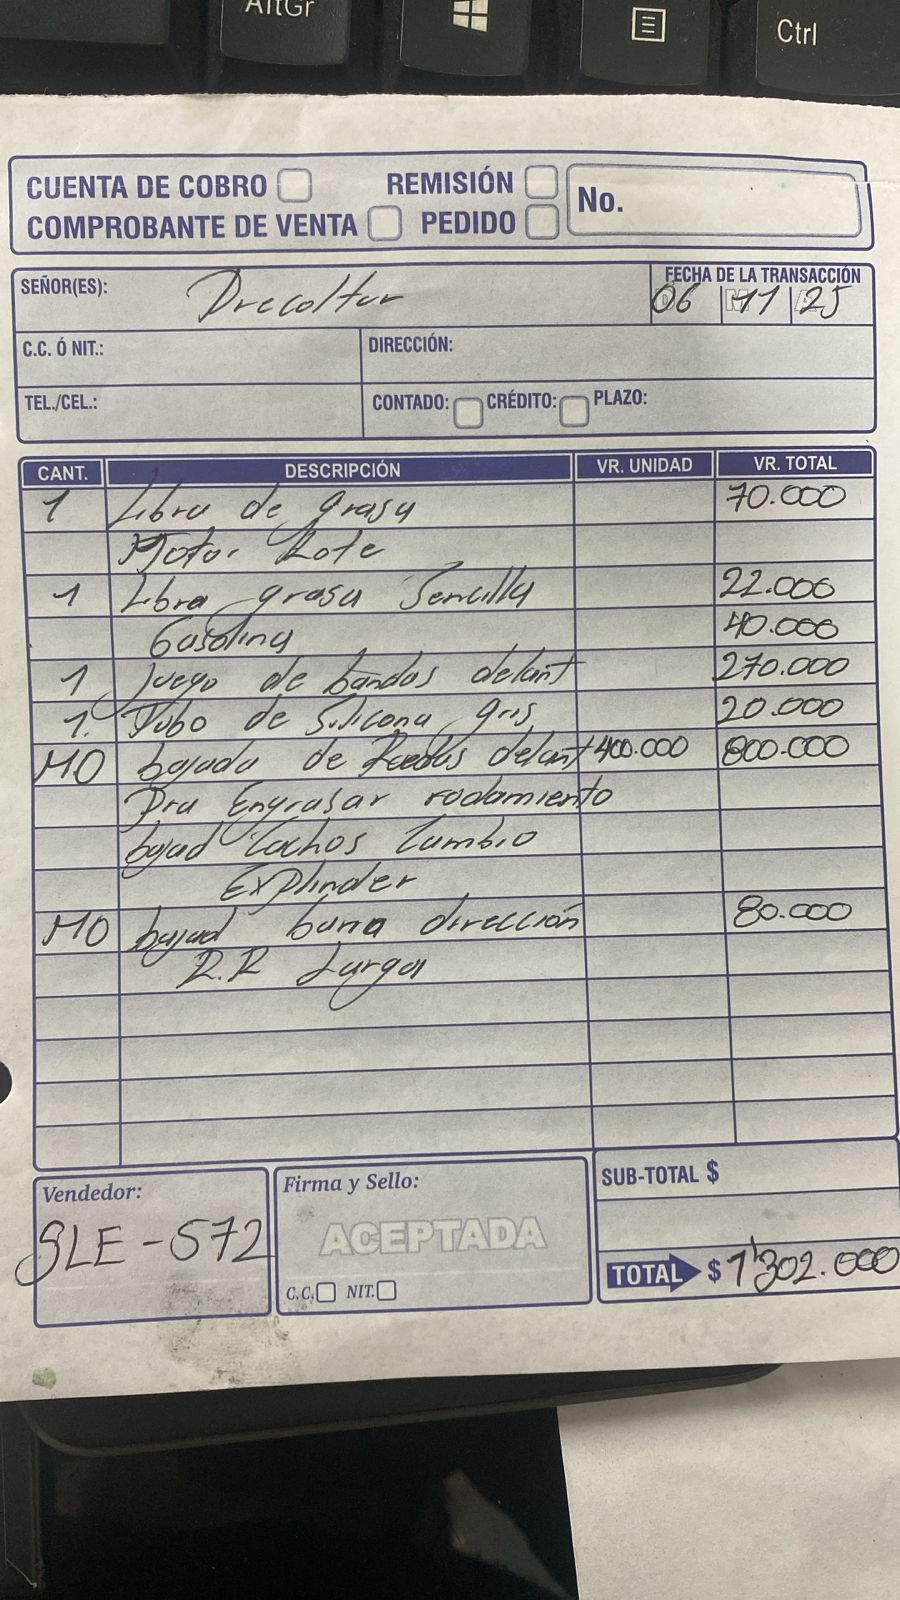 AltGr
Ctrl
CUENTA DE COBRO REMISIÓN No.
COMPROBANTE DE VENTA PEDIDO
SEÑOR(ES): Drecoltur FECHA DE LA TRANSACCIÓN
06 11 25
C.C. Ó NIT.: DIRECCIÓN:
TEL./CEL.: CONTADO: CRÉDITO: PLAZO:
CANT. DESCRIPCIÓN VR. UNIDAD VR. TOTAL
1 Libra de grasa 70.000
Motor Lote
1 Libra grasa Sencilla 22.000
Gasolina 40.000
1 Juego de bandas delant 270.000
1. Tubo de Silicona gris 20.000
MO bajada de Ruedas delant 400.000 800.000
Pra Engrasar rodamiento
bajad Cambio
Explinder
MO bajad barra dirección 80.000
Larga
Vendedor: Firma y Sello: SUB-TOTAL $
SLE-572 ACEPTADA
C.C. NIT. TOTAL $ 1'302.000